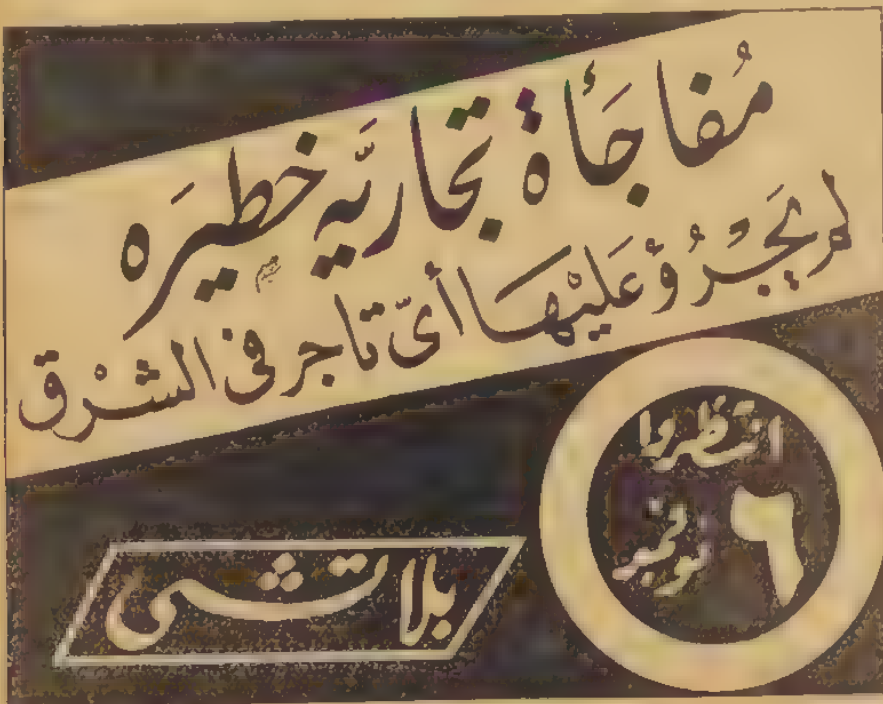 مُفاجَأة تجاريَّه خطيرَه
لم يَجْرُؤ عَليْهَا أىّ تاجر فى الشرْق
انتظروا
٦ نوفمبر
بلاتشى